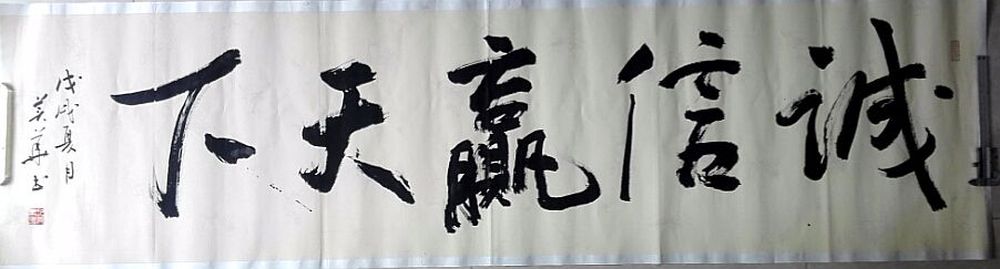 诚信赢天下
戊戌夏月
英华书